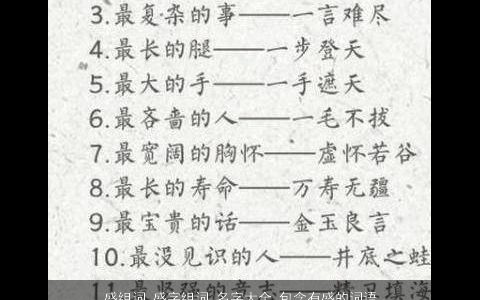 3.最复杂的事——一言难尽
4.最长的腿——一步登天
5.最大的手——一手遮天
6.最吝啬的人——一毛不拔
7.最宽阔的胸怀——虚怀若谷
8.最长的寿命——万寿无疆
9.最宝贵的话——金玉良言
10.最没见识的人——井底之蛙
11.最坚强的意志——精卫填海
盛组词,盛字组词,名字大全,包含有盛的词语